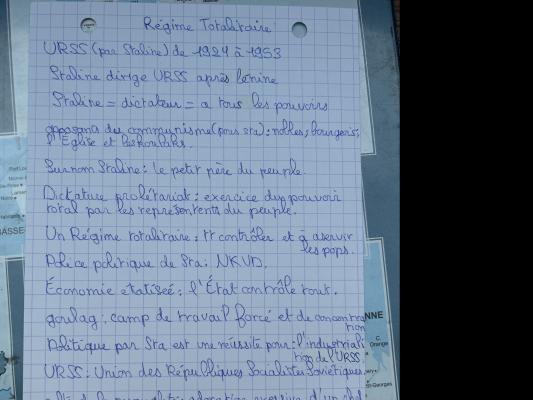 Régime Totalitaire
URSS (par Staline) de 1924 à 1953
Staline dirige URSS après Lénine
Staline = dictateur = a tous les pouvoirs
opposant du communisme (pour Sta) : nobles, bourgeois,
l'Église et
Surnom Staline : le petit père du peuple.
Dictature prolétariat : exercice du pouvoir
total par les représentents du peuple.
Un Régime totalitaire : tt contrôler et à aservir
les pops.
Police politique de Sta : NKVD.
Économie étatisée : l'État contrôle tout.
goulag : camp de travail forcé et de concentra
tion
Politique par Sta est une réussite pour : l'industriali
tion de l'URSS
URSS : Union des Républiques Socialistes Soviétiques.
NNE
C
Orange
St-Georges
ASSE